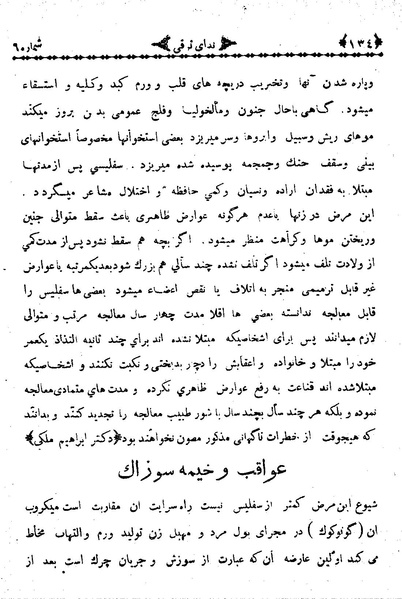 ﴿۱۳٤﴾ ندای ترقی شماره ۹
وپاره شدن آنها وتخریب دریچه های قلب و ورم کبد وکلیه و استسقاء
میشود. گاهی باحال جنون ومالخولیا وفلج عمومی بدن بروز میکند
موهای ریش وسبیل وابروها وسر میریزد بعضی استخوانها مخصوصاً استخوانهای
بینی وسقف حنك وجمجمه پوسیده شده میریزد. سفلیسی پس ازمدتها
مبتلا به فقدان اراده ونسیان وکمی حافظه و اختلال مشاعر میگردد.
این مرض درزنها باعدم هرگونه عوارض ظاهری باعث سقط متوالی جنین
وریختن موها وکراهت منظر میشود. اگر بچه هم سقط نشود پس از مدت کمی
از ولادت تلف میشود اگر تلف نشده چند سالی هم بزرك شود بعد یکمرتبه یاعوارض
غیر قابل ترمیمی منجر به اتلاف یا نقص اعضاء میشود بعضی ها سفلیس را
قابل معالجه ندانسته بعضی ها اقلا مدت چهار سال معالجه مرتب و متوالی
لازم میدانند پس برای اشخاصیکه مبتلا نشده اند برای چند ثانیه التذاذ یکعمر
خود را مبتلا و خانواده و اعقابش را دچار بدبختی و نکبت نکنند و اشخاصیکه
مبتلاشده اند قناعت به رفع عوارض ظاهری نکرده و مدت های متمادی معالجه
نموده و بلکه هر چند سال بچند سال با شور طبیب معالجه را تجدید کنند و بدانند
که هیچوقت از خطرات ناگهانی مذکور مصون نخواهند بود ﴿دکتر ابراهیم ملکی﴾
عواقب وخیمه سوزاك
شیوع این مرض کمتر از سفلیس نیست راه سرایت ان مقاربت است میکروب
ان (گونوکوك) در مجرای بول مرد و مهبل زن تولید ورم والتهاب مخاط
می کند اولین عارضه آن که عبارت از سوزش و جریان چرك است بعد از